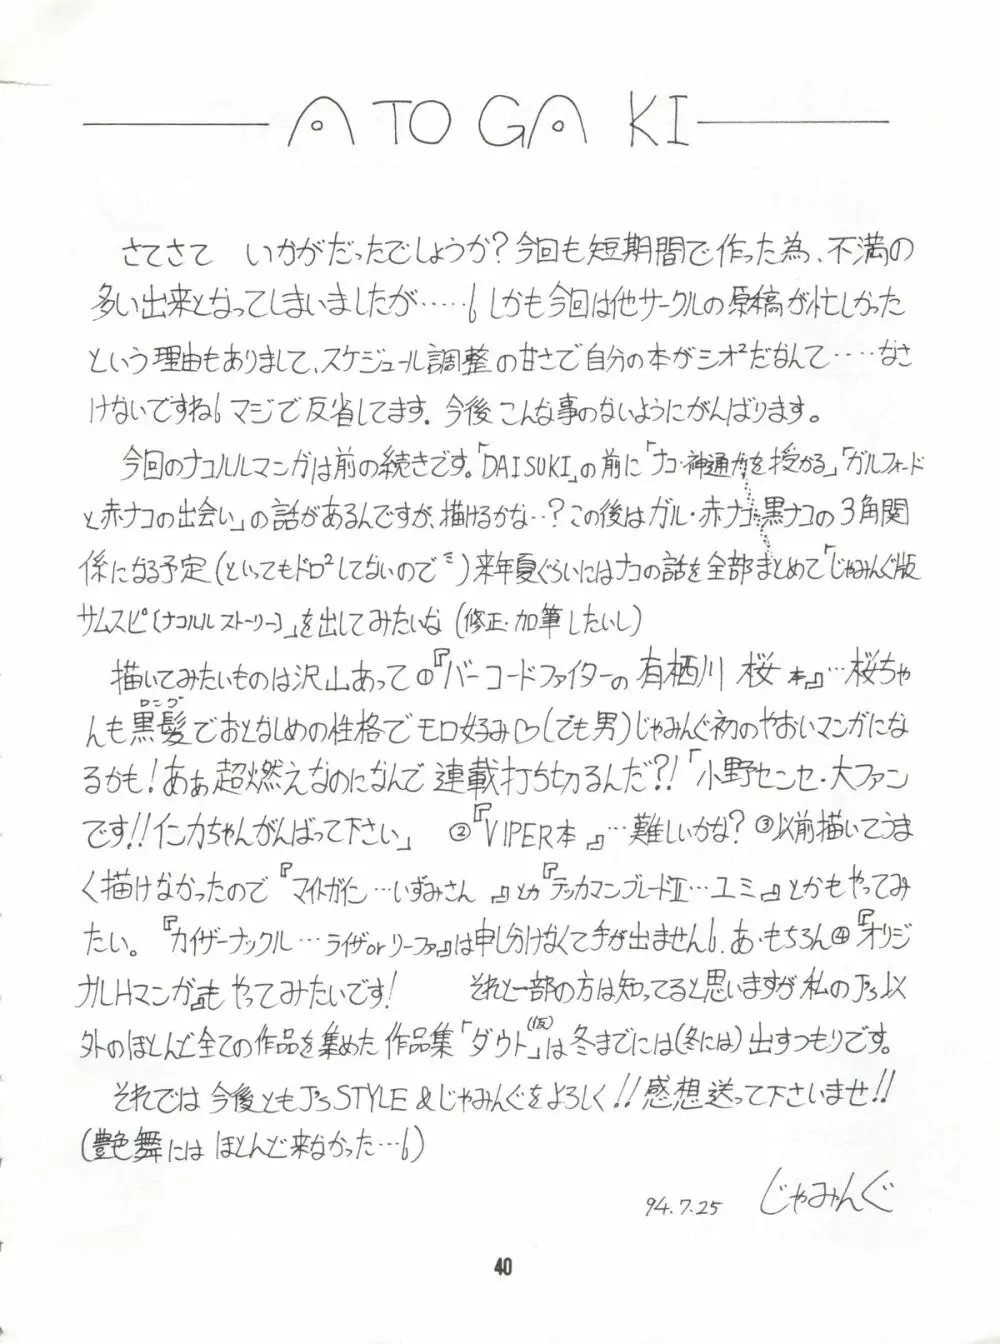 ATOGAKI
さてさて　いかがだったでしょうか?今回も短期間で作った為、不満の
多い出来となってしまいましたが……しかも今回は他サークルの原稿が忙しかった
という理由もありまして、スケジュール調整の甘さで自分の本がシオ²だなんて‥‥なさ
けないですね マジで反省してます. 今後こんな事のないようにがんばります。
今回のナコルルマンガは前の続きです。「DAISUKI」の前に「ナコ・神通力を授かる」「ガルフォード
と赤ナコの出会い」の話があるんですが、描けるかな‥?この後はガル・赤ナコ・黒ナコの3角関
係になる予定(といってもドロ²してないので)来年夏ぐらいにはナコの話を全部まとめて「じゃみんぐ版
サムスピ〔ナコルルストーリー〕」を出してみたいな(修正・加筆したいし)
描いてみたいものは沢山あって①『バーコードファイターの有栖川 桜 本』…桜ちゃ
ロング
んも黒髪でおとなしめの性格でモロ好み♡(でも男)じゃみんぐ初のやおいマンガにな
るかも!あぁ超燃えなのになんで連載打ち切るんだ?!「小野センセ・大ファン
です!!インカちゃんがんばって下さい」 ②『VIPER本』…難しいかな?③以前描いてうま
く描けなかったので『マイトガイン…いずみさん』とか『テッカマンブレードⅡ…ユミ』とかもやってみ
たい。『カイザーナックル…ライザorリーファ』は申し分けなくて手が出ません. あ・もちろん④『オリジ
ナルHマンガ』もやってみたいです! それと一部の方は知ってると思いますが私のJ's以
外のほとんど全ての作品を集めた作品集「ダウト(仮)」は冬までには(冬には)出すつもりです。
それでは今後ともJ's STYLE&じゃみんぐをよろしく!!感想送って下さいませ!!
(艶舞にはほとんど来なかった…)
94.7.25 じゃみんぐ
40